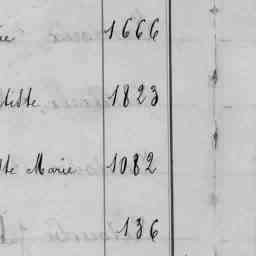 ie 1666
tiste 1823
ste Marie 1082
136